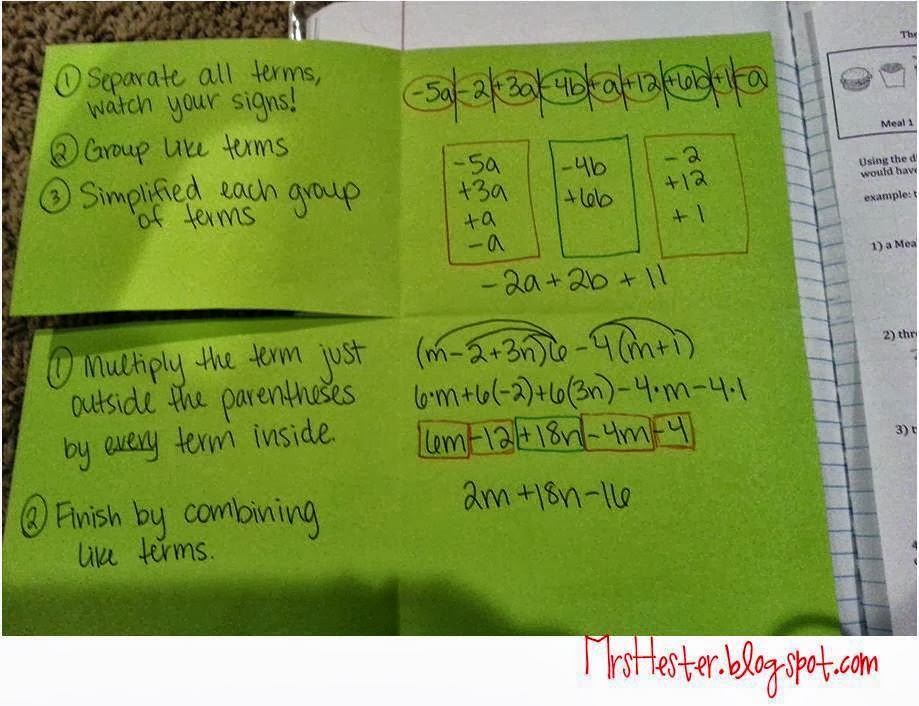 ① Separate all terms,
watch your signs!
② Group like terms
③ Simplified each group
of terms
-5a|-2|+3a|-4b|+a|+12|+6b|+1|-a
-5a
+3a
+a
-a
-4b
+6b
-2
+12
+1
-2a+2b+11
① Multiply the term just
outside the parentheses
by every term inside.
② Finish by combining
like terms.
(m-2+3n)6-4(m+1)
6•m+6(-2)+6(3n)-4•m-4•1
6m-12+18n-4m-4
2m+18n-16
The
Meal 1
Using the d
would have
example: t
1) a Mea
2) thr
3) t
MrsHester.blogspot.com